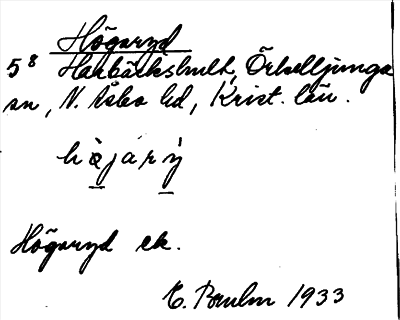 Högaryd
5⁸ Harbäckshult, Örkelljunga
sn, N. Åsbo hd, Krist. län.
hö̀jarý
Högaryd ek.
1933